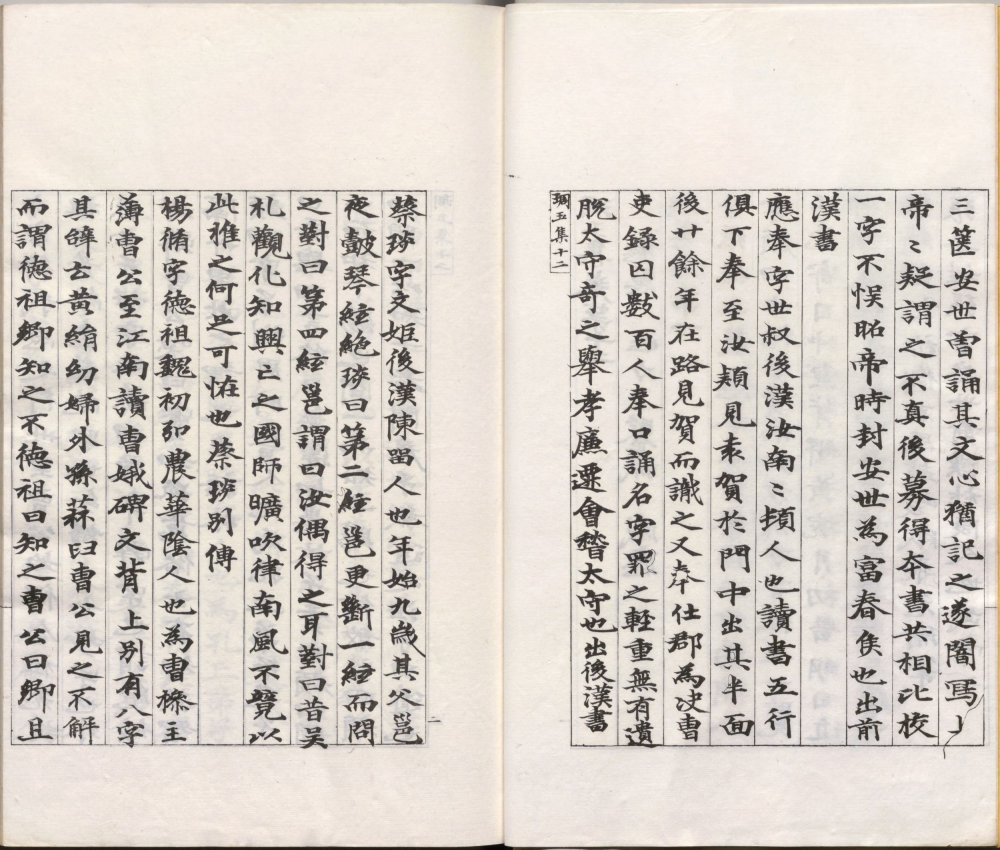 三篋安世曹誦其文心猶記之遂闇寫了
帝〻疑謂之不真後募得夲書共相比校
一字不悞昭帝時封安世為富春侯也出前
漢書
應奉字世叔後漢汝南〻頓人也讀書五行
俱下奉至汝穎見袁賀於門中出其半面
後廿餘年在路見賀而識之又奉仕郡為決曹
吏錄囚数百人奉口誦名字罪之軽重無有遺
脫太守奇之舉孝廉遷會稽太守也出後漢書
琱玉集十二
蔡琰字文姬後漢陳留人也年始九歲其父邕
夜皷琴絃絶琰曰第二絃邕更斷一絃而問
之對曰第四絃邕謂曰汝偶得之耳對曰昔吴
札觀化知興亡之國師曠吹律南風不竸以
此推之何足可恠也蔡琰別傳
楊脩字德祖魏初弘農華陰人也為曹操主
薄曹公至江南讀曹娥碑文背上別有八字
其辝云黄絹幼婦外孫蒜臼曹公見之不解
而謂德祖卿知之不德祖曰知之曹公曰卿且
一